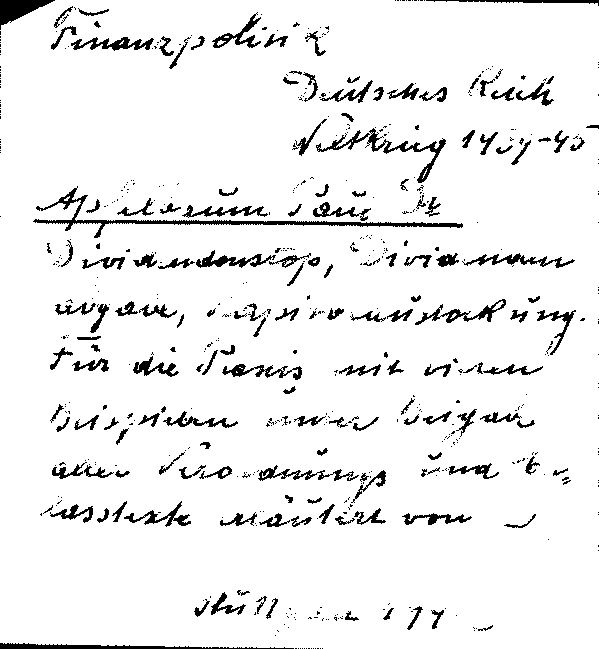 Finanzpolitik
Deutsches Reich
Weltkrieg 1939-45
Apfelbaum Paul Dr
Dividendenstop, Dividenden
abgabe, Kapitalaufstockung.
Für die Praxis mit vielen
Beispielen unter Beigabe
aller Verordnungs und Er-
lasstexte erläutert von —
Stuttgart